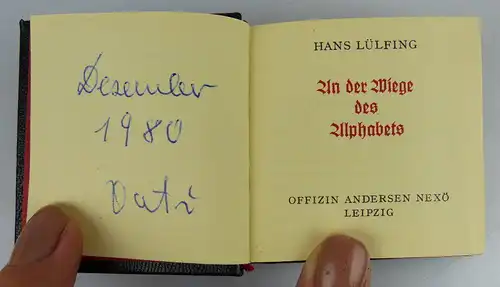 Dezember
1980
Vati
HANS LÜLFING
An der Wiege
des
Alphabets
OFFIZIN ANDERSEN NEXÖ
LEIPZIG